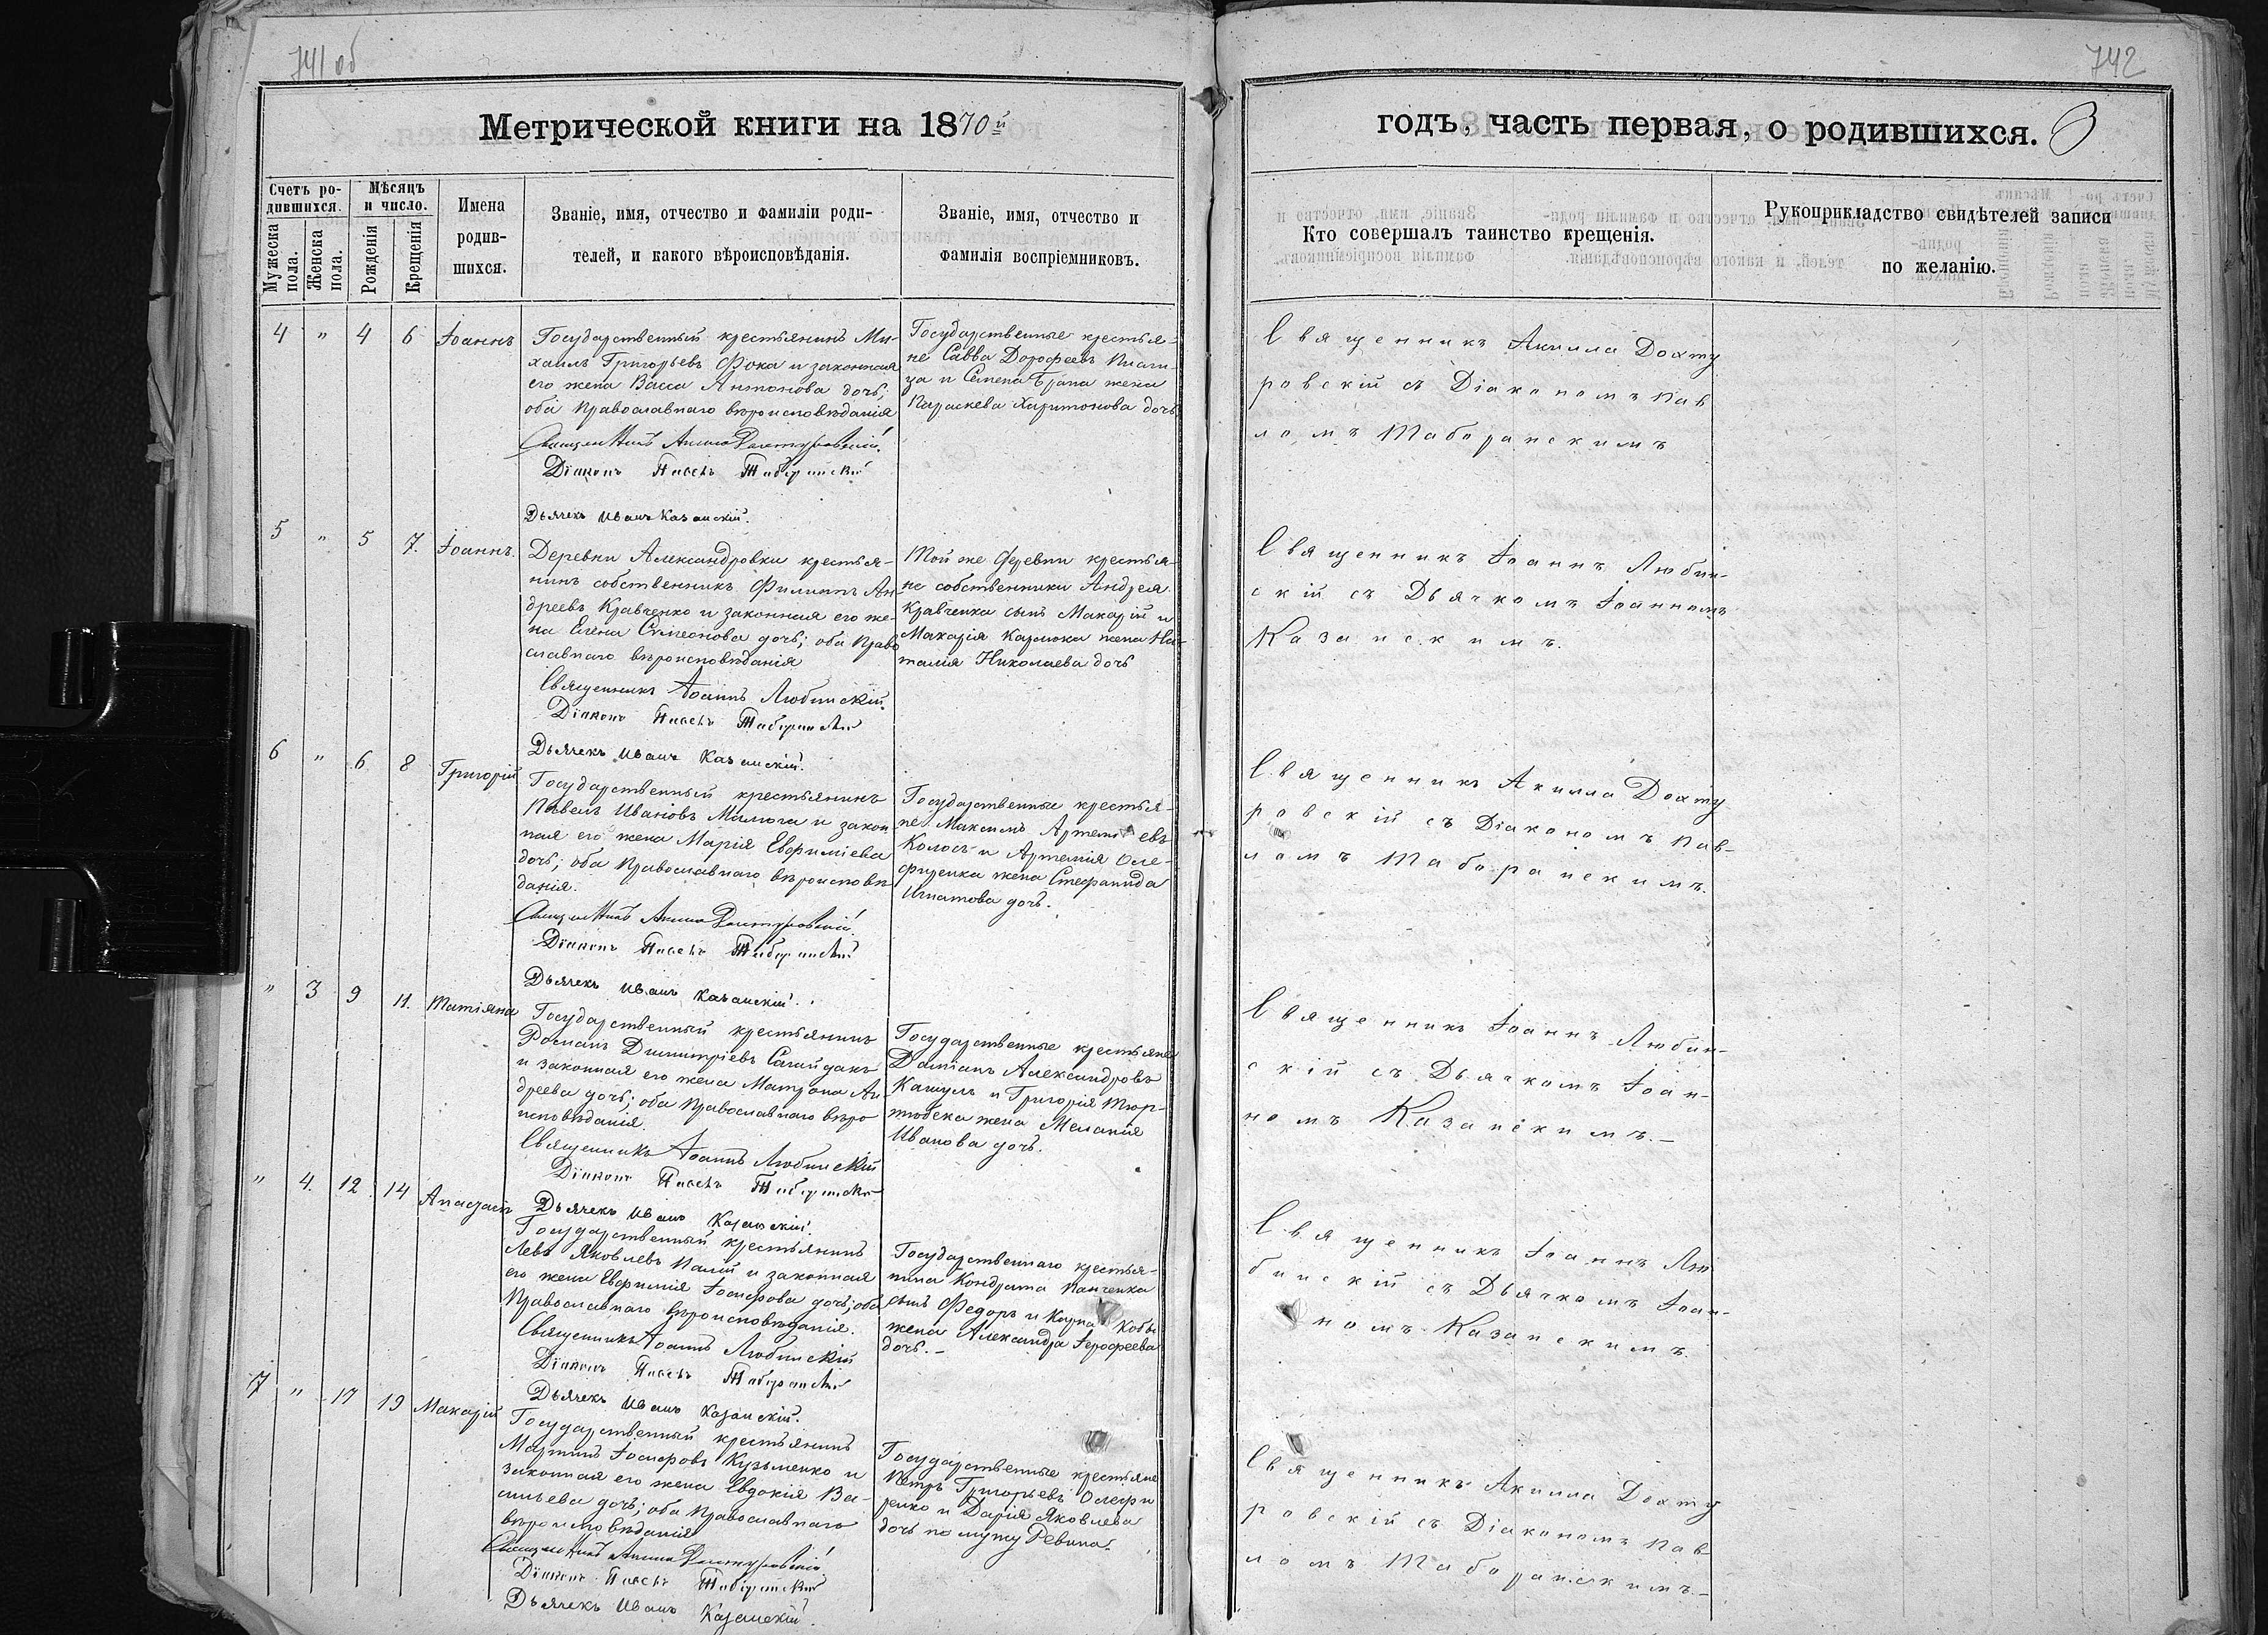 741 об
742
Метрической книги на 1870й
годъ, часть первая, о родившихся.
3
Счетъ ро-
дившихся.
Мужеска
пола.
Женска
пола.
Мѣсяцъ
и число.
Рожденія
Крещенія
Имена
родив-
шихся.
Званіе, имя, отчество и фамиліи роди-
телей, и какого вѣроисповѣданія.
Званіе, имя, отчество и
фамилія воспріемниковъ.
Кто совершалъ таинство крещенія.
Рукоприкладство свидѣтелей записи
по желанію.
4 " 4 6 Іоаннъ
Государственный крестьянинъ Ми-
хаилъ Григорьевъ Фока и законная
его жена Васса Антонова дочь,
оба Православнаго вѣроисповѣданія
Священникъ Акила Дохтуровскій
Діаконъ Павелъ Таборанскій
Дьячекъ Иванъ Казанскій.
Государственные крестья-
не Савва Дорофеевъ
ца и Семена жена
Параскева Харитонова дочь
Священникъ Акилла Дохту
ровскій съ Діакономъ Пав
ломъ Таборанскимъ
5 " 5 7. Іоаннъ.
Деревни Александровки крестья-
нинъ собственникъ Филиппъ Ан-
дреевъ Кравченко и законная его же-
на Елена Симеонова дочь; оба Право
славнаго вѣроисповѣданія
Священникъ Іоаннъ Любинскій.
Діаконъ Павелъ Таборанскій
Дьячекъ Иванъ Казанскій.
Той же деревни крестья-
не собственники Андрея
Кравченка сынъ Макарій и
Макарія Карлюка жена На-
талія Николаева дочь
Священникъ Іоаннъ Любин-
скій съ Дьячкомъ Іоанномъ
Казанскимъ.
6 " 6 8 Григорій
Государственный крестьянинъ
Павелъ Ивановъ Малюга и закон
ная его жена Марія Евфиміева
дочь; оба Православнаго вѣроисповѣ
данія.
Священникъ Акила Дохтуровскій
Діаконъ Павелъ Таборанскій
Дьячекъ Иванъ Казанскій.
Государственные крестья-
не Максимъ Артемьевъ
Колосъ и Артемія Оле-
фиренка жена Стефанида
Игнатова дочь.
Священникъ Акилла Дохту
ровскій съ Діакономъ Пав-
ломъ Таборанскимъ.
" 3 9 11. Татіяна
Государственный крестьянинъ
Романъ Димитріевъ Сагайдакъ
и законная его жена Матрона Ан-
дреева дочь; оба Православнаго вѣро
исповѣданія.
Священникъ Іоаннъ Любинскій
Діаконъ Павелъ Таборанскій
Дьячекъ Иванъ Казанскій.
Государственные крестьяне
Даміанъ Александровъ
Кашуль и Григорія Тюр-
тюбека жена Меланія
Иванова дочь.
Священникъ Іоаннъ Любин-
скій съ Дьячкомъ Іоан-
номъ Казанскимъ.-
" 4. 12 14 Анастасія
Государственный крестьянинъ
Левъ Яковлевъ Палій и законная
его жена Евфимія Іосифова дочь; оба
Православнаго вѣроисповѣданія.
Священникъ Іоаннъ Любинскій
Діаконъ Павелъ Таборанскій
Дьячекъ Иванъ Казанскій.
Государственнаго крестья-
нина Кондрата Панченка
сынъ Федоръ и Карпа Кобы
жена Александра Іерофеева
дочь.-
Священникъ Іоаннъ Лю
бинскій съ Дьячкомъ Іоан-
номъ Казанскимъ.
7 " 17 19 Макарій
Государственный крестьянинъ
Мартинъ Іосифовъ Кузьменко и
законная его жена Евдокія Ва-
сильева дочь; оба Православнаго
вѣроисповѣданія
Священникъ Акила Дохтуровскій
Діаконъ Павелъ Таборанскій
Дьячекъ Иванъ Казанскій.
Государственные крестьяне
Петръ Григорьевъ Олефи
ренко и Дарія Яковлева
дочь по мужу Ревина.
Священникъ Акилла Дохту
ровскій съ Діакономъ Пав-
ломъ Таборанскимъ.-